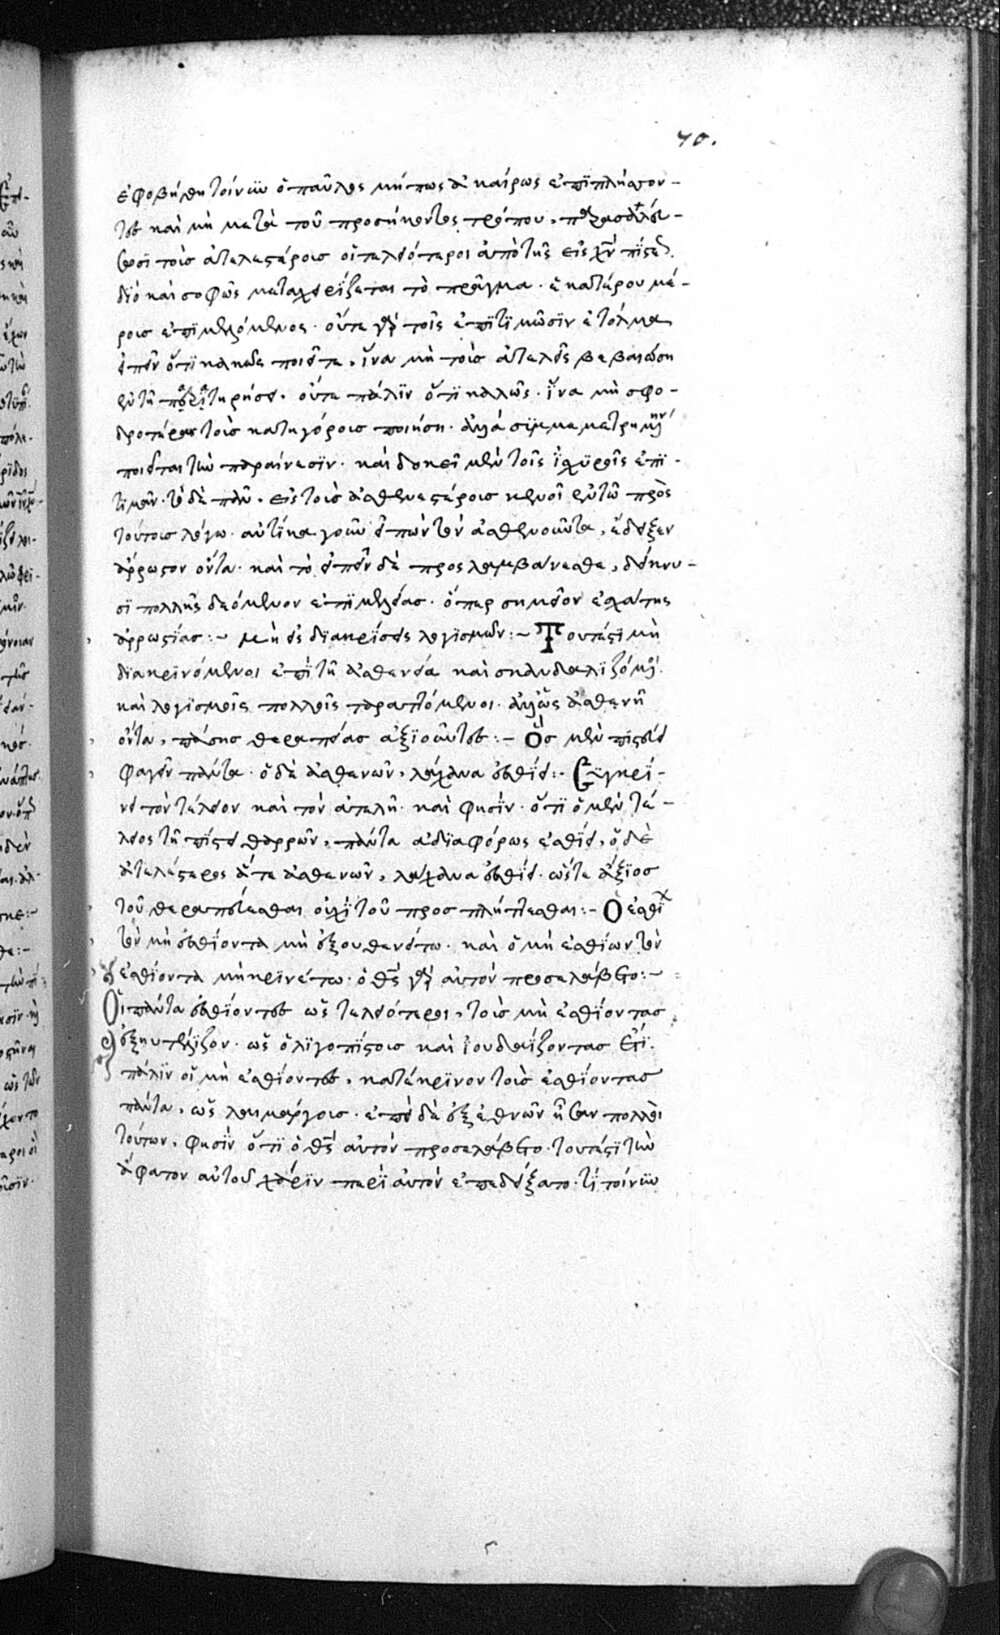 70.
ἐφοβήθη τοίνυν ὁ παῦλος μήπως ἀκαίρως ἐπιπλήττον-
τες καὶ μὴ μετὰ τοῦ προσήκοντος τρόπου,
τοῖς ἀτελεστέροις οἱ τελεώτεροι ἀπὸ τῆς εἰς χν πίστεως.
διὸ καὶ σοφῶς μεταχειρίζεται τὸ πρᾶγμα. ἑκατέρου μέ-
ρους ἐπιμελόμενος. οὔτε γὰρ τοῖς ἐπιτιμῶσιν ἐτόλμα
εἰπεῖν ὅτι κακῶς ποιεῖτε, ἵνα μὴ τοὺς ἀτελεῖς βεβαιώσῃ
ἐν τῇ παρατηρήσει. οὔτε πάλιν ὅτι καλῶς. ἵνα μὴ σφο-
δροτέρους τοὺς κατηγόρους ποιήσῃ. ἀλλὰ σύμμετρον
ποιεῖται τὴν παραίνεσιν. καὶ δοκεῖ μὲν τοῖς ἰσχυροῖς ἐπι-
τιμᾶν. τὸ δὲ πᾶν, εἰς τοὺς ἀσθενεστέρους κενοῖ ἐν τῷ πρὸς
τούτους λόγῳ. αὐτίκα γοῦν εἰπὼν τὸν ἀσθενοῦντα, ἔδειξεν
ἄρρωστον ὄντα. καὶ τὸ εἰπεῖν δὲ προσλαμβάνεσθε, δείκνυ-
σι πολλῆς δεόμενον ἐπιμελείας. ὅπερ σημεῖον ἐσχάτης
ἀρρωστίας:– μὴ εἰς διακρίσεις λογισμῶν:– Τουτέστι μὴ
διακρινόμενοι ἐπὶ τῇ ἀσθενείᾳ καὶ σκανδαλιζόμενοι.
καὶ λογισμοῖς πολλοῖς ταραττόμενοι. ἄλλως ἀσθενῆ
ὄντα, πάσης θεραπείας ἀξιοῦντες:– Ὃς μὲν πιστεύει
φαγεῖν πάντα. ὁ δὲ ἀσθενῶν, λάχανα ἐσθίει:– Συγκρί-
νει τὸν τέλειον καὶ τὸν ἀτελῆ. καὶ φησίν. ὅτι ὁ μὲν τέ-
λειος τῇ πίστει θαρρῶν, πάντα ἀδιαφόρως ἐσθίει, ὁ δὲ
ἀτελέστερος ἅτε ἀσθενῶν, λάχανα ἐσθίει. ὥστε ἄξιος
τοῦ θεραπεύεσθαι οὐχὶ τοῦ προσπλήττεσθαι:– Ὁ ἐσθίων
τὸν μὴ ἐσθίοντα μὴ ἐξουθενείτω. καὶ ὁ μὴ ἐσθίων τὸν
ἐσθίοντα μὴ κρινέτω. ὁ θς γὰρ αὐτὸν προσελάβετο:–
Οἱ πάντα ἐσθίοντες ὡς τελειότεροι, τοὺς μὴ ἐσθίοντας
ἐξηυτέλιζον. ὡς ὀλιγοπίστους καὶ ἰουδαΐζοντας ἔτι.
πάλιν οἱ μὴ ἐσθίοντες, κατέκρινον τοὺς ἐσθίοντας
πάντα, ὡς λαιμάργους. ἐπεὶ δὲ ἐξ ἐθνῶν ἦσαν πολλοὶ
τούτων, φησὶν ὅτι ὁ θς αὐτὸν προσελάβετο. τουτέστι τὴν
ἄφατον αὐτοῦ χάριν περὶ αὐτὸν ἐπεδείξατο. τί τοίνυν